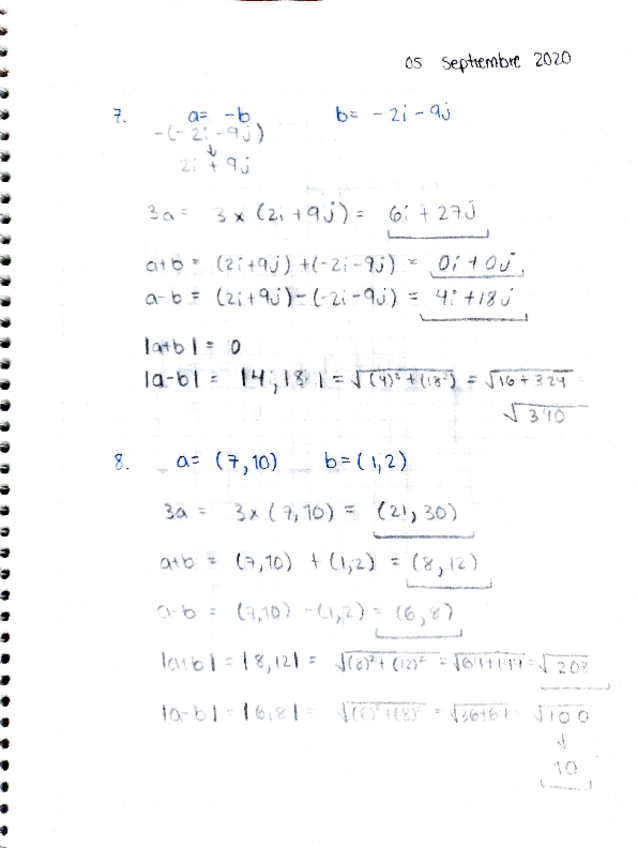 05 Septiembre 2020
7. a= -b b= -2i -9j
-(-2i -9j)
↓
2i + 9j
3a = 3 x (2i +9j) = 6i + 27j
a+b = (2i+9j) +(-2i-9j) = 0i + 0j
a-b = (2i+9j)-(-2i-9j) = 4i +18j
|a+b| = 0
|a-b| = |4,18| = √(4)² + (18²) = √16 + 324
√340
8. a= (7,10) b=(1,2)
3a = 3x(7,10) = (21,30)
a+b = (7,10) + (1,2) = (8,12)
a-b = (7,10) -(1,2) = (6,8)
|a+b| = |8,12| = √(8)² + (12)² = √64+144 = √208
|a-b| = |6,8| = √(6)²+(8)² = √36+64 √100
↓
10